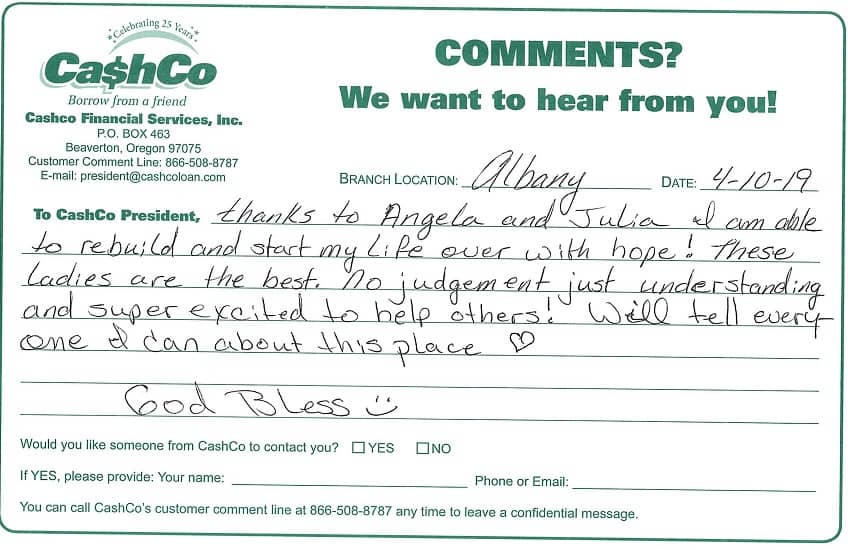 Celebrating 25 Years
Ca$hCo
Borrow from a friend
Cashco Financial Services, Inc.
P.O. BOX 463
Beaverton, Oregon 97075
Customer Comment Line: 866-508-8787
E-mail: president@cashcoloan.com
COMMENTS?
We want to hear from you!
BRANCH LOCATION: Albany DATE: 4-10-19
To CashCo President, thanks to Angela and Julia I am able
to rebuild and start my life over with hope! These
Ladies are the best. No judgement just understanding
and super excited to help others! Will tell every
one I can about this place ♡
God Bless :)
Would you like someone from CashCo to contact you? ☐ YES ☐ NO
If YES, please provide: Your name: Phone or Email:
You can call CashCo's customer comment line at 866-508-8787 any time to leave a confidential message.